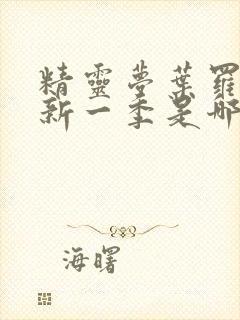 精靈夢葉羅
新一季是哪
海曙